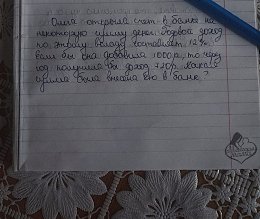 Оля открыла счет в банке на
некоторую сумму денег. Годовой доход
по этому вкладу составляет 12%.
Если бы она добавила 1000 р, то через
год получила бы доход 720р. Какая
сумма была внесена ею в банк?